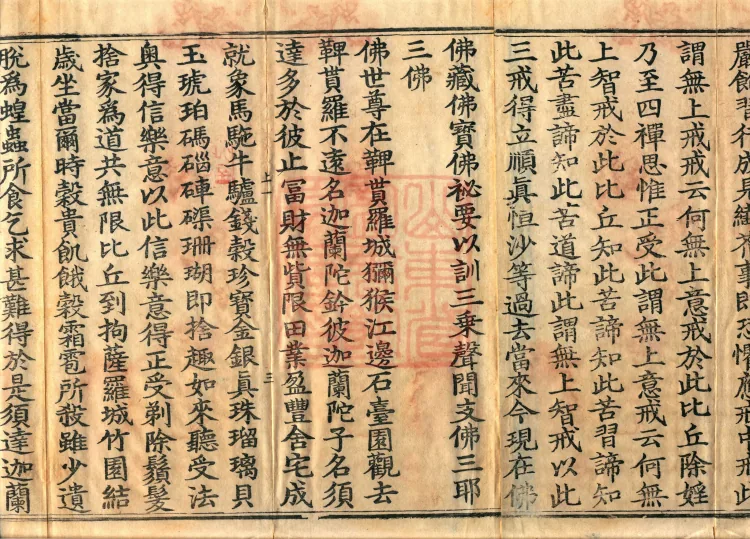 嚴飾
謂無上戒戒云何無上意戒於此比丘除婬
乃至四禪思惟正受此謂無上意戒云何無
上智戒於此比丘知此苦諦知此苦習諦知
此苦盡諦知此苦道諦此謂無上智戒以此
三戒得立順眞恒沙等過去當來今現在佛
佛藏佛寶佛祕要以訓三乘聲聞支佛三耶
三佛
佛世尊在鞞貰羅城獼猴江邊石臺園觀去
鞞貰羅不遠名迦蘭陀鈴彼迦蘭陀子名須
達多於彼止冨財無貲限田業盈豐舍宅成
就象馬駞牛驢錢穀珍寶金銀眞珠瑠璃貝
上
三
玉琥珀碼碯硨磲珊瑚即捨趣如來聽受法
奥得信樂意以此信樂意得正受剃除鬚髮
捨家爲道共無限比丘到拘薩羅城竹園結
歲坐當爾時穀貴飢餓穀霜雹所殺雖少遺
脫爲蝗蟲所食乞求甚難得於是須達迦蘭